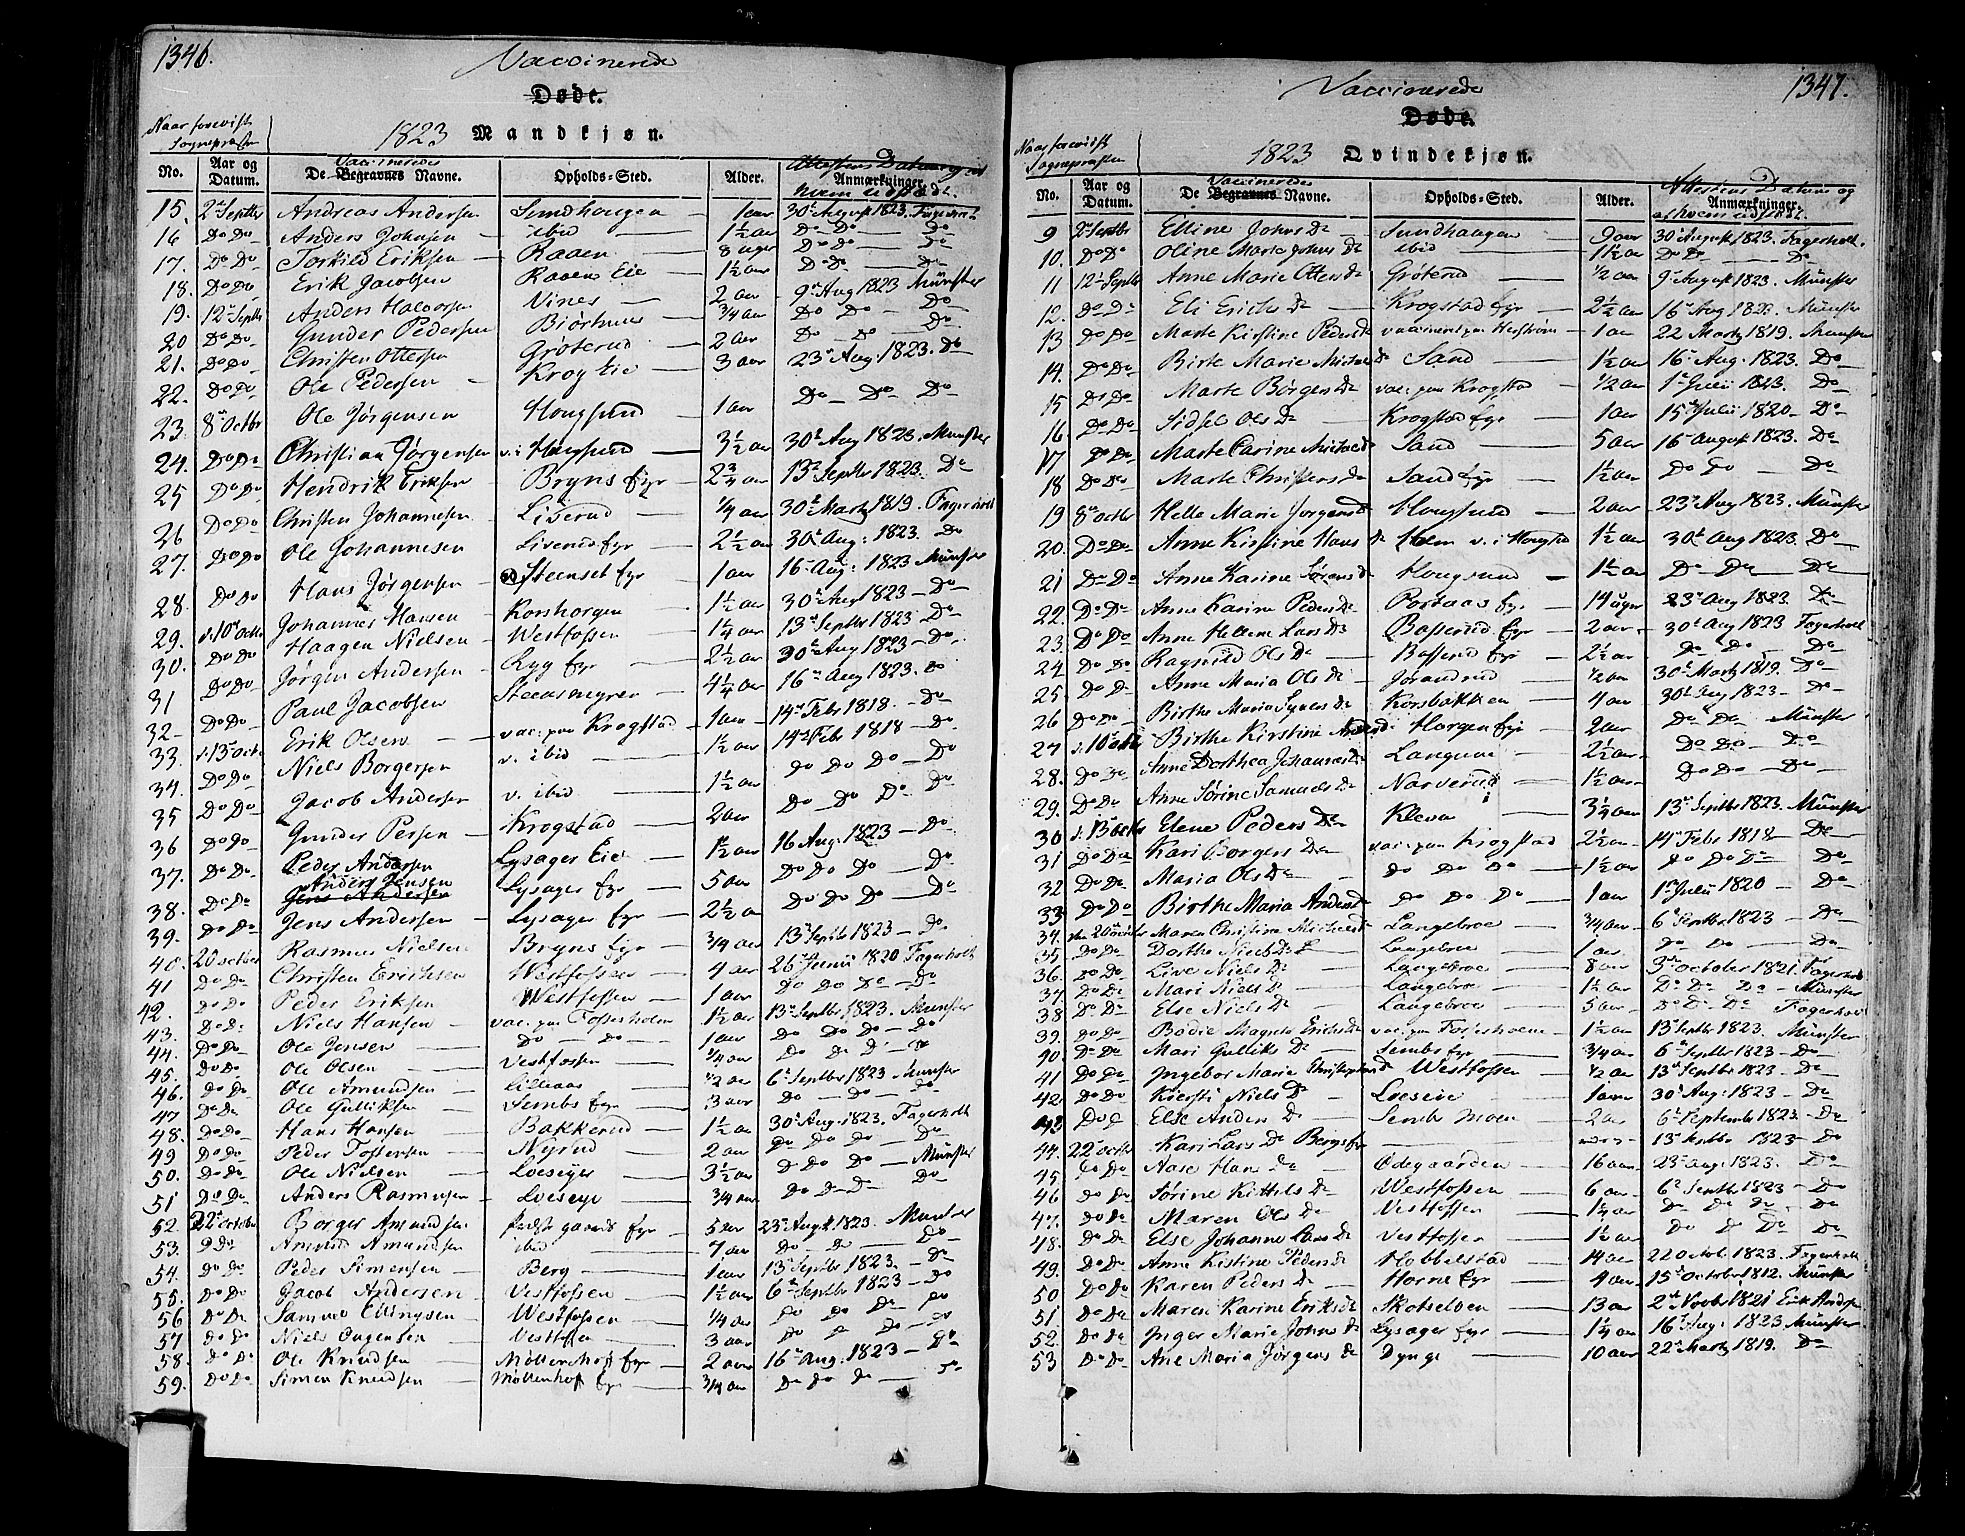 1346.
Vaccinerede
Døde.
Naar forevist
Sognepræsten
1823 Mandkjøn.
No. Aar og Datum. De Vaccineredes Begravnes Navne. Opholds-Sted. Alder. Attestens Datum og af hvem udstædt. Anmærkninger.
15. 2den Septbr Andreas Andersen Sundhaugen 1 aar 30t August 1823. Fagerholt
16 Do Do Anders Johnsen ibid 1½ aar Do Do Do
17. Do Do Torkild Eriksen Raaen 8 uger Do Do Do
18. Do Do Erik Jacobsen Raaens Eie 1½ aar Do Do Do
19. 12t Septbr Anders Halvorsen Vines 2 aar 9de Aug 1823 Münster
20 Do Do Gunder Pedersen Biørhuus ¾ aar Do Do Do
21. Do Do Christen Ottersen Grøterud 2 aar Do Do Do
22. Do Do Ole Pedersen Krog Eie 3 aar 23de Aug. 1823. Do
23. 8de Octbr Ole Jørgensen Hougsund 1 aar Do Do Do
24. Do Do Christian Jørgensen v. i Hougsund 3½ aar 30t Aug 1823. Münster
25 Do Do Hendrik Eriksen Bryns Eyr 2¾ aar 13de Septbr 1823. Do
26 Do Do Christen Johannesen Liverud ¼ aar 30t Martz 1819. Fagerholt
27. Do Do Ole Johannesen Liverud Eyr 2½ aar 30t Aug: 1823. Do
28. Do Do Hans Jørgensen Steenset Eyr 1 aar 16de Aug: 1823 Münster
29. d. 10de Octbr Johannes Hansen Korshorgen 1½ aar 30t Aug 1823 Do
30. Do Do Haagen Nielsen Westfossen 1¼ aar 13de Septbr 1823 Do
31 Do Do Jørgen Andersen Ryg Eyr 2½ aar 30t Aug 1823 Do
32 Do Do Paul Jacobsen Steensmyren 4¼ aar 16de Aug 1823. Do
33. d. 13de Octbr Erik Olsen vac. paa Krogstad 1 aar 14de Febr 1818. Do
34. Do Do Niels Borgersen v. ibid 1½ aar 14de Febr 1818 Do
35 Do Do Jacob Andersen v. ibid 1½ aar Do Do Do Do
36 Do Do Gunder Persen Krogstad 2 aar Do Do Do Do
37. Do Do Peder Andersen Lysager Eie 1½ aar 16 Aug. 1823 Do
38. Do Do Anders Jensen Jens Andersen Lysager Eyr 5 aar Do Do Do Do
39. Do Do Jens Andersen Lysager Eyr 2½ aar Do Do Do Do
40. 20 Octbr Rasmus Nielsen Bryns Eyr ¾ aar 13de Septbr 1823 Do
41 Do Do Christen Erichsen Westfossen 4 aar 26de Junii 1820 Fagerholt
42. Do Do Peder Eriksen Westfossen 1 aar Do Do Do Do
43. Do Do Niels Hansen vac. paa Fosseholm 1½ aar 13de Septbr 1823. Münster
44. Do Do Ole Jensen Do Do 1 aar Do Do Do Do
45. Do Do Ole Olsen Vestfossen ¼ aar Do Do Do Do
46. Do Do Ole Amundsen Lilleaas ½ aar 6de Septbr 1823 Münster
47 Do Do Ole Gulliksen Sembs Eyr 3 aar Do Do Do
48. Do Do Hans Hansen Bakkerud 1½ aar 30t Aug. 1823. Fagerholt
49 Do Do Peder Tostensen Nyrud 2 aar Do Do Do Do
50. Do Do Ole Nielsen Loeseye 3½ aar Do Do Do Münster
51 Do Do Anders Rasmusen Loeseye ¾ aar Do Do Do Do
52. 22de October Borger Amundsen Eyr 5 aar 23de August 1823. Münster
53. Do Do Amund Amundsen ibid 7 aar Do Do Do
54. Do Do Peder Simensen Berg 1 aar 13de Septbr 1823. Do
55. Do Do Jacob Andersen Vestfossen 1½ aar 6de Septbr 1823 Do
56 Do Do Samuel Ellingsen Westfossen ¼ aar Do Do Do Do
57 Do Do Niels Vestfossen 3 aar Do Do Do Do
58. Do Do Ole Knudsen Møllenhof Eyr 2 aar 16de Aug. 1823 Do
59. Do Do Simen Knudsen Møllenhof Eyr ¾ aar Do Do Do Do
1347.
Vaccinerede
Døde.
Naar forevist
Sognepræsten
1823 Qvindekjøn.
No. Aar og Datum. De Vaccineredes Begravnes Navne. Opholds-Sted. Alder. Attestens Datum og af hvem udstædt. Anmærkninger.
9 2de Septbr Elline Johns Dr Sundhaugen 9 aar 30 August 1823. Fagerholt.
10. Do Do Oline Marie Johns Dr ibid 1½ aar Do Do Do
11 12t Septbr Anne Marie Otters Dr Grøterud ½ aar 9de August 1823. Münster
12. Do Do Eli Erichs Dr Krogstad Eyr 2½ aar 16de Aug 1823. Münster
13 Do Do Marte Kirstine Peders Dr vaccineret paa 1 aar 22 Martz 1819. Münster
14. Do Do Birte Marie Dr Sand 1½ aar 16de Aug. 1823. Do
15 Do Do Marte Borgers Dr vac. paa Krogstad ½ aar 1de Julii 1823. Do
16. Do Do Sidsel Ols Dr Krogstad Eyr 1 aar 15de Julii 1820 Do
17 Do Do Marte Carine Sand 5 aar 16de August 1823. Do
18 Do Do Marte Christens Dr Sand Eyr 1½ aar Do Do Do
19 8de Octbr Helle Marie Jørgens Dr Hougsund 2 aar 23de Aug 1823. Münster
20. Do Do Anne Kirstine Hans Dr Holm v. i Hougsund 1½ aar 30t Aug 1823. Do
21 Do Do Anne Karine Sørens Dr Hougsund 1½ aar Do Do Do
22. Do Do Anne Karine Peders Dr Portaas Eyr 14 uger 23de Aug 1823. Do
23. Do Do Anne Hellene Lars Dr Basserud Eyr 2 aar 30t Aug 1823 Fagerholt
24 Do Do Ragnild Ols Dr Basserud Eyr 2½ aar Do Do Do
25. Do Do Anne Maria Ols Dr Jorandrud ½ aar 30t Martz 1819. Do
26 Do Do Birthe Maria Dr Korsbakken 4 aar 30t Aug 1823 Do
27 d. 10de Octbr Birthe Kirstine Horgen Eyr 2 aar Do Do Münster
28. Do Do Anne Dorthea Johannes Dr Langum 2½ aar Do Do Do
29. Do Do Anne Sørine Samuels Dr Narverud 1½ aar Do Do Do
30 d. 13de Octbr Elene Peders Dr Kleva 3¼ aar 13de Septbr 1823. Münster
31 Do Do Kari Borgers Dr vac. paa Krogstad 2½ aar 14de Febr 1818 Do
32 Do Do Maria Ols Dr Do Do Do 1½ aar Do Do Do Do
33 Do Do Birthe Maria Anders Dr Do Do Do 1 aar 1de Julii 1820 Do
34. den 20 Octbr Maren Christine Langebroe ¾ aar 6de Septbr 1823 Do
35 Do Do Dorthe Niels Dr Langebroe 1 aar. Do Do Do
36. Do Do Live Niels Dr Langebroe 8 aar 3de October 1821. Fagerholt
37. Do Do Mari Niels Dr Langebroe 1½ aar Do Do Do Münster
38 Do Do Else Niels Dr Langebroe 5 aar Do Do Do Fagerholt
39. Do Do Bodie Magnete Erichs Dr vac. paa Fosseholm 1½ aar 13de Septbr 1823. Münster
40 Do Do Mari Gulliks Dr Sembs Eyr ¾ aar 6de Septbr 1823 Do
41 Do Do Ingebor Marie Christophers Dr Westfossen ½ aar 13de Septbr 1823 Do
42 Do Do Kiersti Niels Dr Loeseie 1 aar 30t Aug: 1823 Do
43 Do Do Else Anders Dr Sembs Moen 2 aar 6de Septembr 1823. Do
44. 22de Octbr Kari Lars Dr Bergs Eyr 13de Septbr 1823 Do
45 Do Do Aase Hans Dr Ødegaarden 16 aar 23de Aug: 1823. Do
46 Do Do Sørine Kittels Dr Westfossen 6 aar 6de Septbr 1823 Do
47. Do Do Maren Ols Dr Vestfossen 1¼ aar Do Do Do Do
48. Do Do Else Johanne Lars Dr Vestfossen 1½ aar Do Do Do Do
49. Do Do Anne Kistine Peders Dr Hobbelstad 14 aar 22 Octob. 1823. Fagerholt
50 Do Do Karen Peders Dr Horne Eyr 4 aar 15de October 1812. Münster
51 Do Do Maren Karine Eriks Dr Skotseloen 13 aar 2de Novbr 1821 Erik Anders
52. Do Do Inger Marie Johns Dr Lysager Eyr 1¼ aar 16de Aug: 1823 Münster
53 Do Do Ane Maria Jørgens Dr Dynge 10 aar 22de Martz 1819. Do